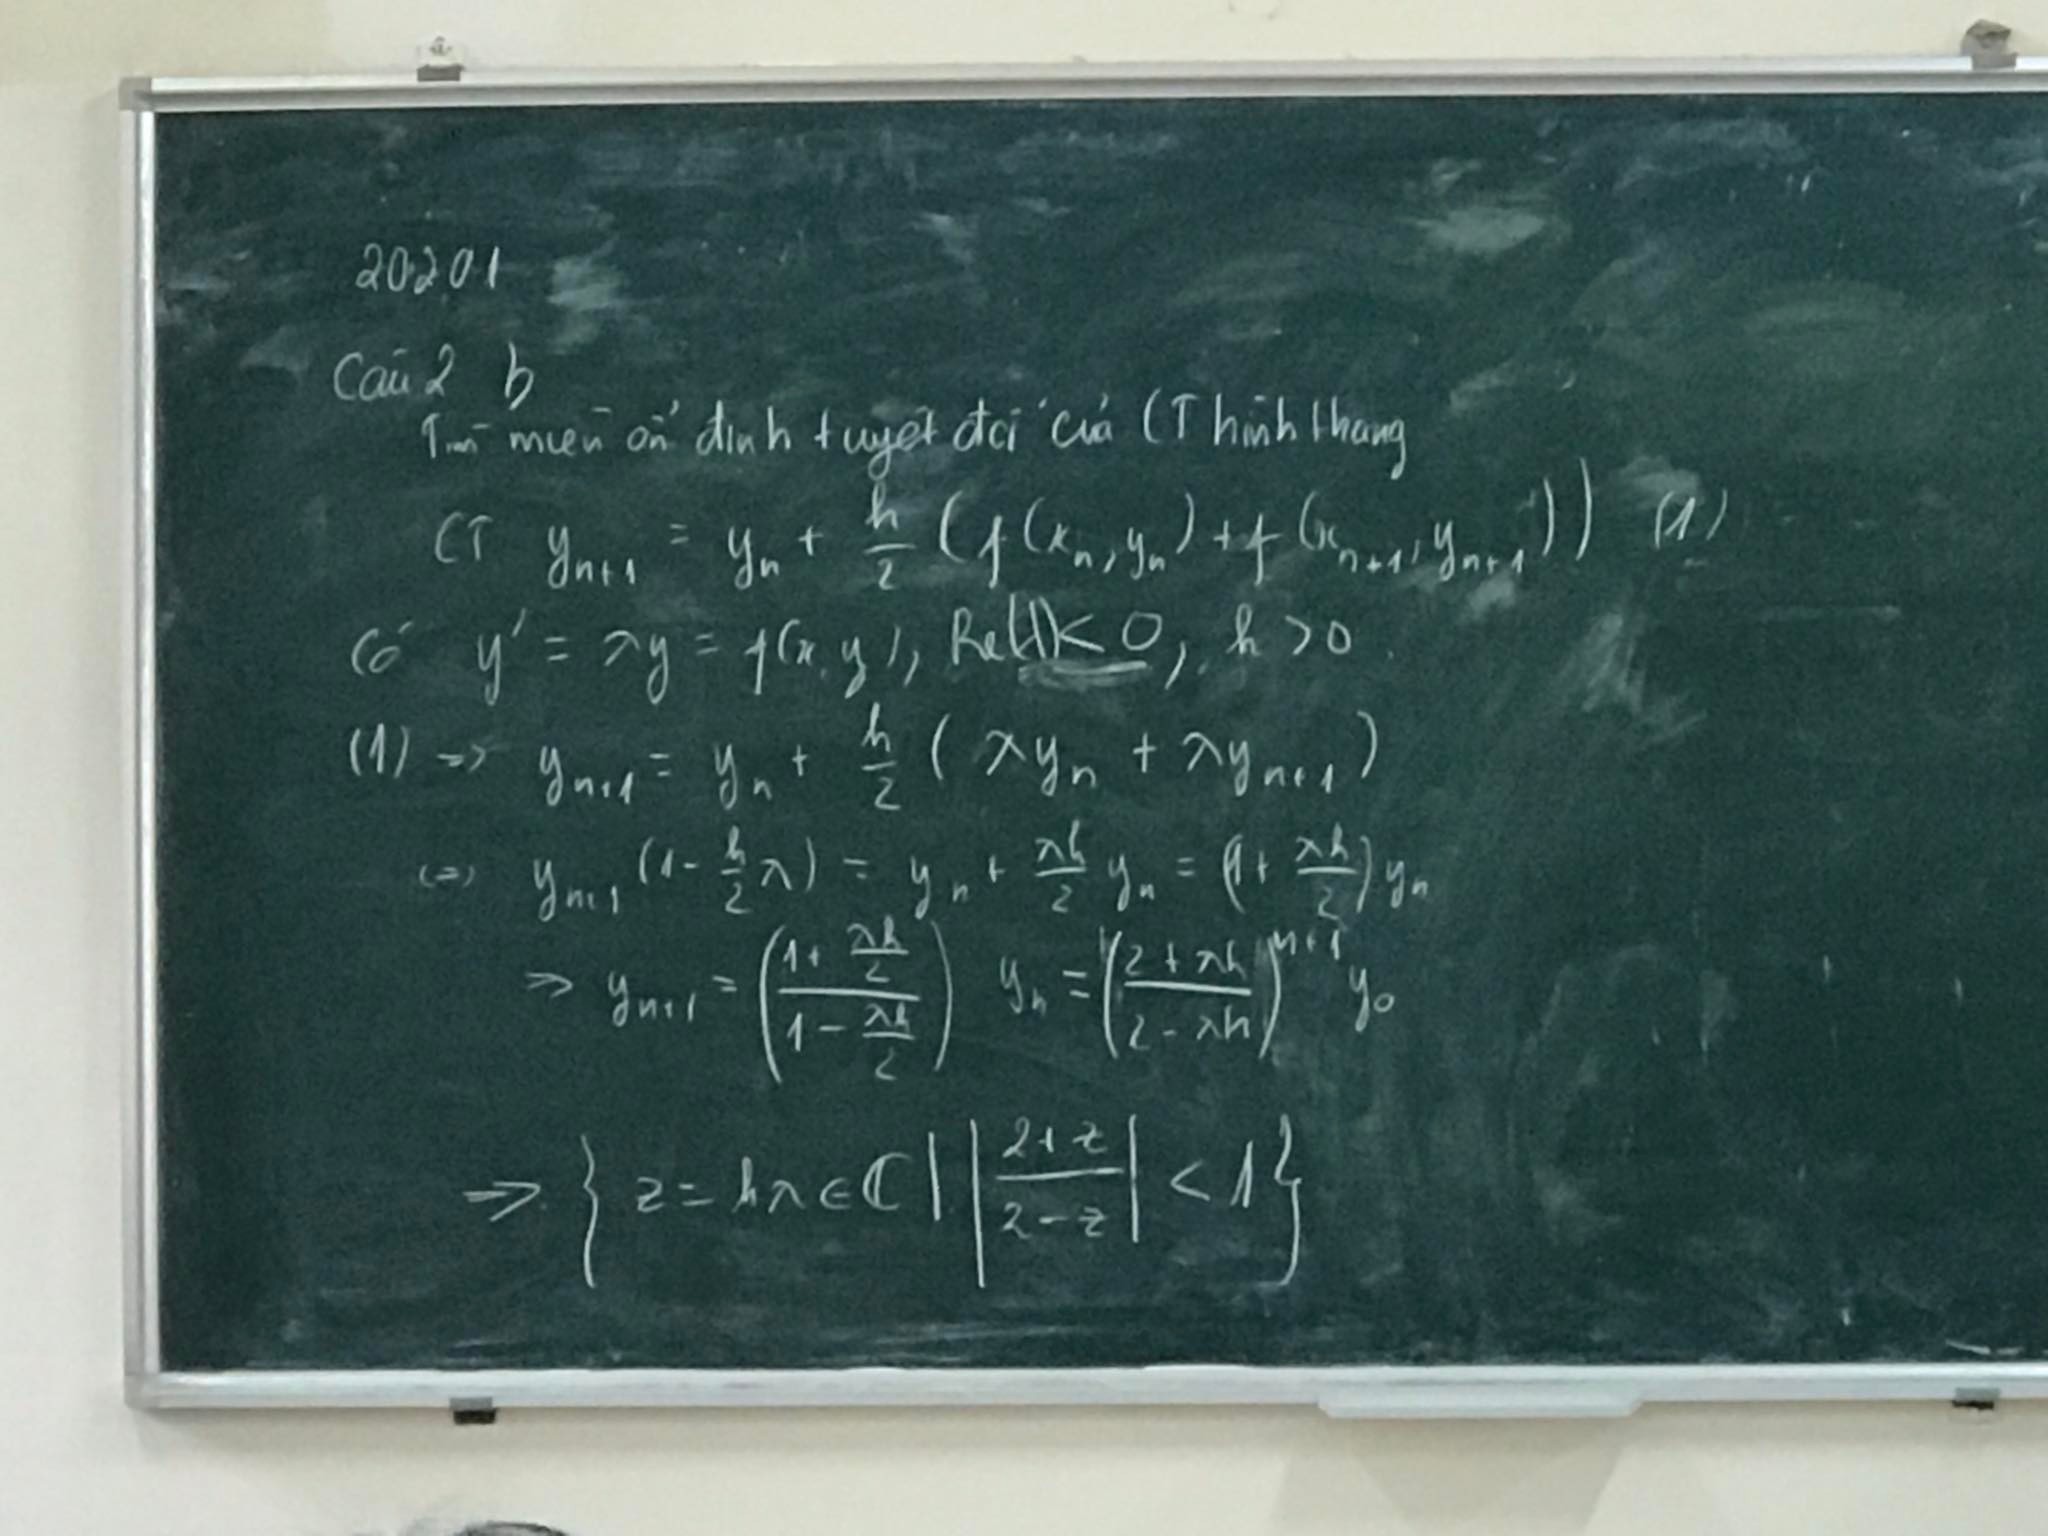 20201
Câu 2 b
Tìm miền ổn định tuyệt đối của CT hình thang
CT y_{n+1} = y_n + \frac{h}{2} (f(x_n, y_n) + f(x_{n+1}, y_{n+1})) (1)
Có y' = λy = f(x, y), Re(λ) < 0, h > 0.
(1) => y_{n+1} = y_n + \frac{h}{2} (λy_n + λy_{n+1})
(=) y_{n+1} (1 - \frac{h}{2} λ) = y_n + \frac{λh}{2} y_n = (1 + \frac{λh}{2}) y_n
=> y_{n+1} = (\frac{1 + \frac{λh}{2}}{1 - \frac{λh}{2}}) y_n = (\frac{2 + λh}{2 - λh})^{n+1} y_0
=> { z = hλ ∈ ℂ | |\frac{2 + z}{2 - z}| < 1 }